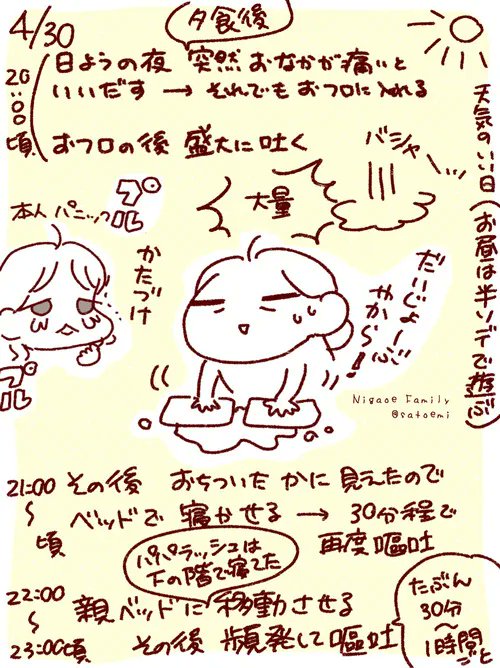 4/30
夕食後
天気のいい日(お昼は半ソデで遊ぶ)
20:00頃
日ようの夜 突然おなかが痛いと
いいだす → それでもおフロに入れる
おフロの後 盛大に吐く
バシャー
大量
本人パニック
プル
プル
かたづけ
だいじょーぶ
やから!
Nigaoe Family
@satoemi
21:00〜頃
その後 おちついたかに見えたので
ベッドで寝かせる → 30分程で
再度嘔吐
パパラッシュは
下の階で寝てた
22:00〜23:00頃
親ベッドに移動させる
その後 頻発して嘔吐
たぶん
30分
〜
1時間ごと